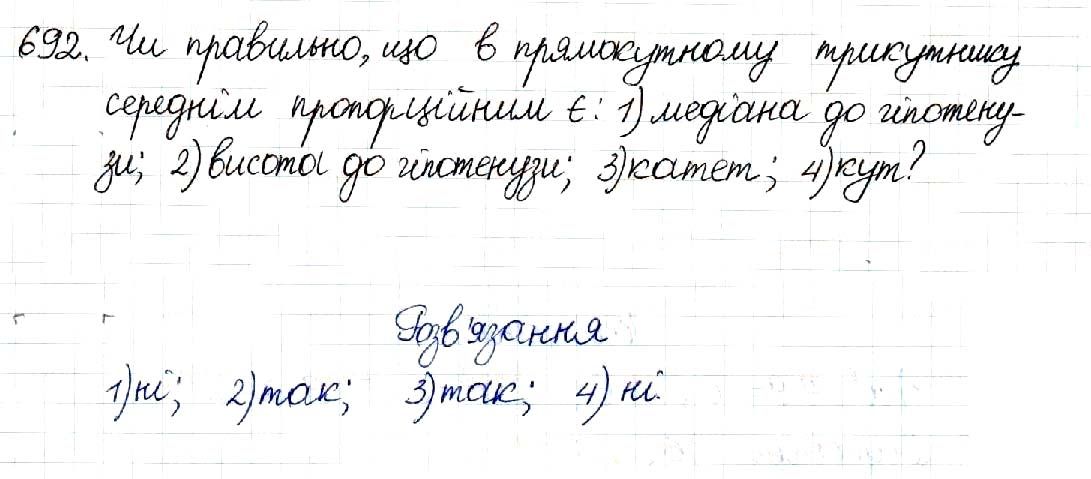 692. Чи правильно, що в прямокутному трикутнику
середнім пропорційним є: 1) медіана до гіпотену-
зи; 2) висота до гіпотенузи; 3) катет; 4) кут?
Розв'язання
1) ні; 2) так; 3) так; 4) ні.